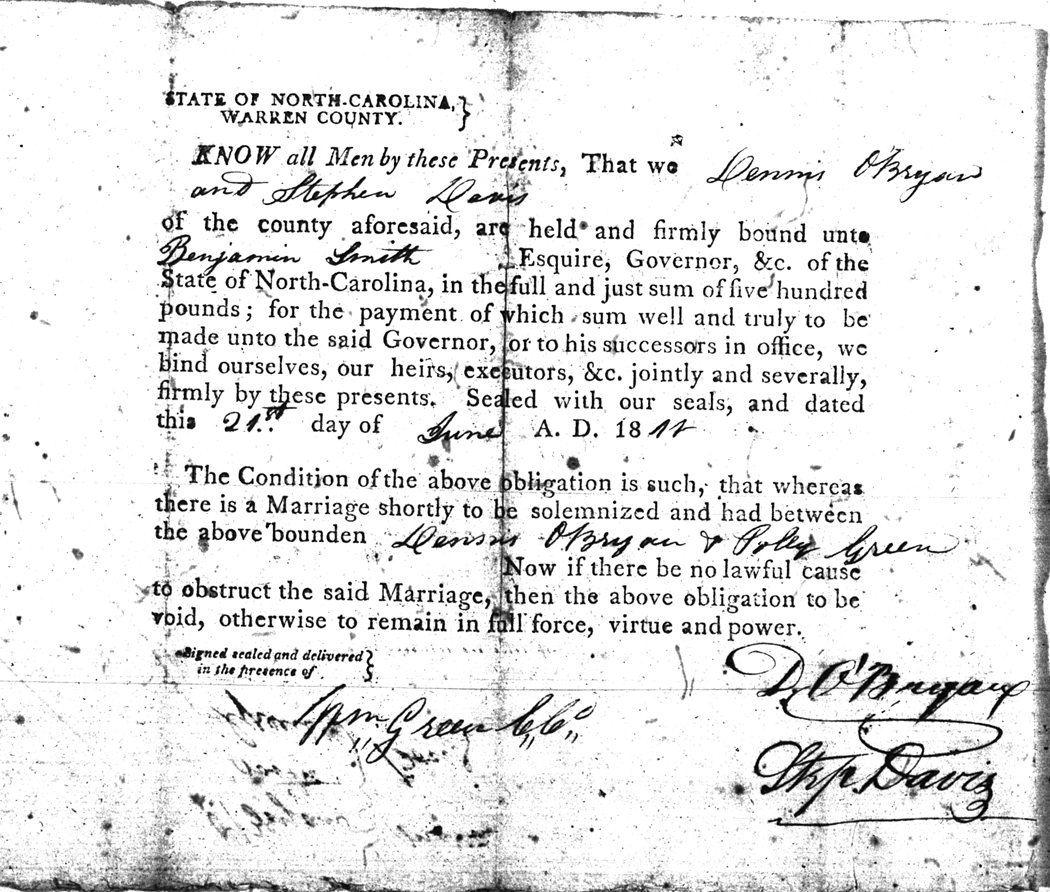 STATE OF NORTH-CAROLINA, }
WARREN COUNTY.
KNOW all Men by these Presents, That we Dennis O'Bryan
and Stephen Davis
of the county aforesaid, are held and firmly bound unto
Benjamin Smith Esquire, Governor, &c. of the
State of North-Carolina, in the full and just sum of five hundred
pounds; for the payment of which sum well and truly to be
made unto the said Governor, or to his successors in office, we
bind ourselves, our heirs, executors, &c. jointly and severally,
firmly by these presents. Sealed with our seals, and dated
this 21.st day of June A. D. 1811
The Condition of the above obligation is such, that whereas
there is a Marriage shortly to be solemnized and had between
the above bounden Dennis O'Bryan & Polly Green
Now if there be no lawful cause
to obstruct the said Marriage, then the above obligation to be
void, otherwise to remain in full force, virtue and power.
Signed sealed and delivered }
in the presence of
D. O'Bryan
Wm Green C.C.
Step. Davis